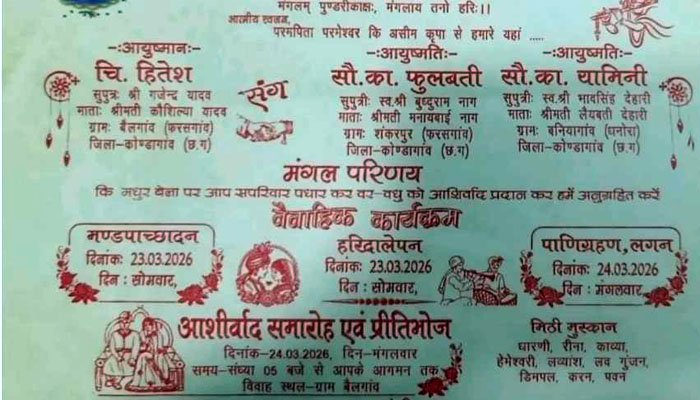 मंगलम् पुण्डरीकाक्षः, मंगलाय तनो हरिः।।
आत्मीय स्वजन,
परमपिता परमेश्वर कि असीम कृपा से हमारे यहां .....
-ःआयुष्मानः-
चि. हितेश
सुपुत्रः श्री गजेन्द्र यादव
माताः श्रीमती कौशिल्या यादव
ग्रामः बैलगांव (फरसगांव)
जिला-कोण्डागांव (छ.ग)
संग
-ःआयुष्मतिः-
सौ.का. फुलबती
सुपुत्रीः स्व.श्री बुध्दुराम नाग
माताः श्रीमती मनायबाई नाग
ग्रामः शंकरपुर (फरसगांव)
जिला-कोण्डागांव (छ.ग)
-ःआयुष्मतिः-
सौ.का. यामिनी
सुपुत्रीः स्व.श्री भावसिंह देहारी
माताः श्रीमती लैयबती देहारी
ग्रामः बनियागांव (धनोरा)
जिला-कोण्डागांव (छ.ग)
मंगल परिणय
कि मधुर बेला पर आप सपरिवार पधार कर वर-वधु को आशिर्वाद प्रदान कर हमें अनुग्रहित करें
वैवाहिक कार्यक्रम
मण्डपाच्छादन
दिनांकः 23.03.2026
दिन : सोमवार,
हरिद्रालेपन
दिनांकः 23.03.2026
दिन : सोमवार,
पाणिग्रहण,लगन
दिनांकः 24.03.2026
दिन : मंगलवार,
आशीर्वाद समारोह एवं प्रीतिभोज
दिनांक-24.03.2026, दिन-मंगलवार
समय-संध्या 05 बजे से आपके आगमन तक
विवाह स्थल-ग्राम बैलगांव
मिठी मुस्कान
धारणी, रीना, काव्या,
हेमेश्वरी, लव्यांश, लव गुंजन,
डिमपल, करन, पवन